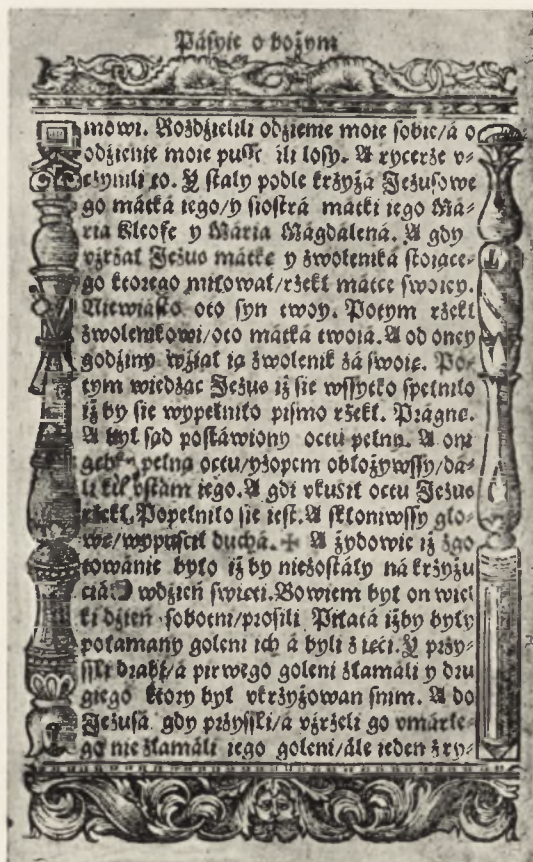 Pásyie o bożym
mowi. Rożdżielili odżienie moie sobie/á o
odżienie moie pusć ili losy. A rycerże v⸗
cżynili to. Y staly podle krżyżá Jeżusowe
go mátká iego/y siostrá mátki iego Má⸗
ria Kleofe y Mária Mágdálená. A gdy
vżrżał Jeżus mátkę y żwoleniká stoiące⸗
go ktorego miłował/rżekł mátce swoiey.
Niewiásto oto syn twoy. Potym rżekł
żwolenikowi/oto mátká twoiá. A od oney
godżiny wżiął ią żwolenik żá swoię. Po⸗
tym wiedżąc Jeżus iż sie wssytko spełniło
iż by sie wypełniło pismo rżekł. Prágnę.
A był sąd postáwiony octu pełny. A oni
gębkę pełną octu/yżopem obłożywssy/da⸗
li kü vstam iego. A gdi vkusił octu Jeżus
rżekł. Popełniło sie iest. A skłoniwssy gło⸗
wę/wypuścił duchá. ✠ A żydowie iż żgo
towánie było iż by nieżostáły ná krżyżu
ciáłá w dżień święti. Bowiem był on wiel
ki dżień sobotni/prosili Piłatá iżby były
połamany goleni ich á byli żięci. Y przy⸗
ssli drabi/á pirwego goleni żłamáli y dru
giego ktory był vkrżyżowan snim. A do
Jeżusá gdy przyssli/á vżrżeli go vmárłe⸗
go nie żłamáli iego goleni/ále ieden ż ry⸗